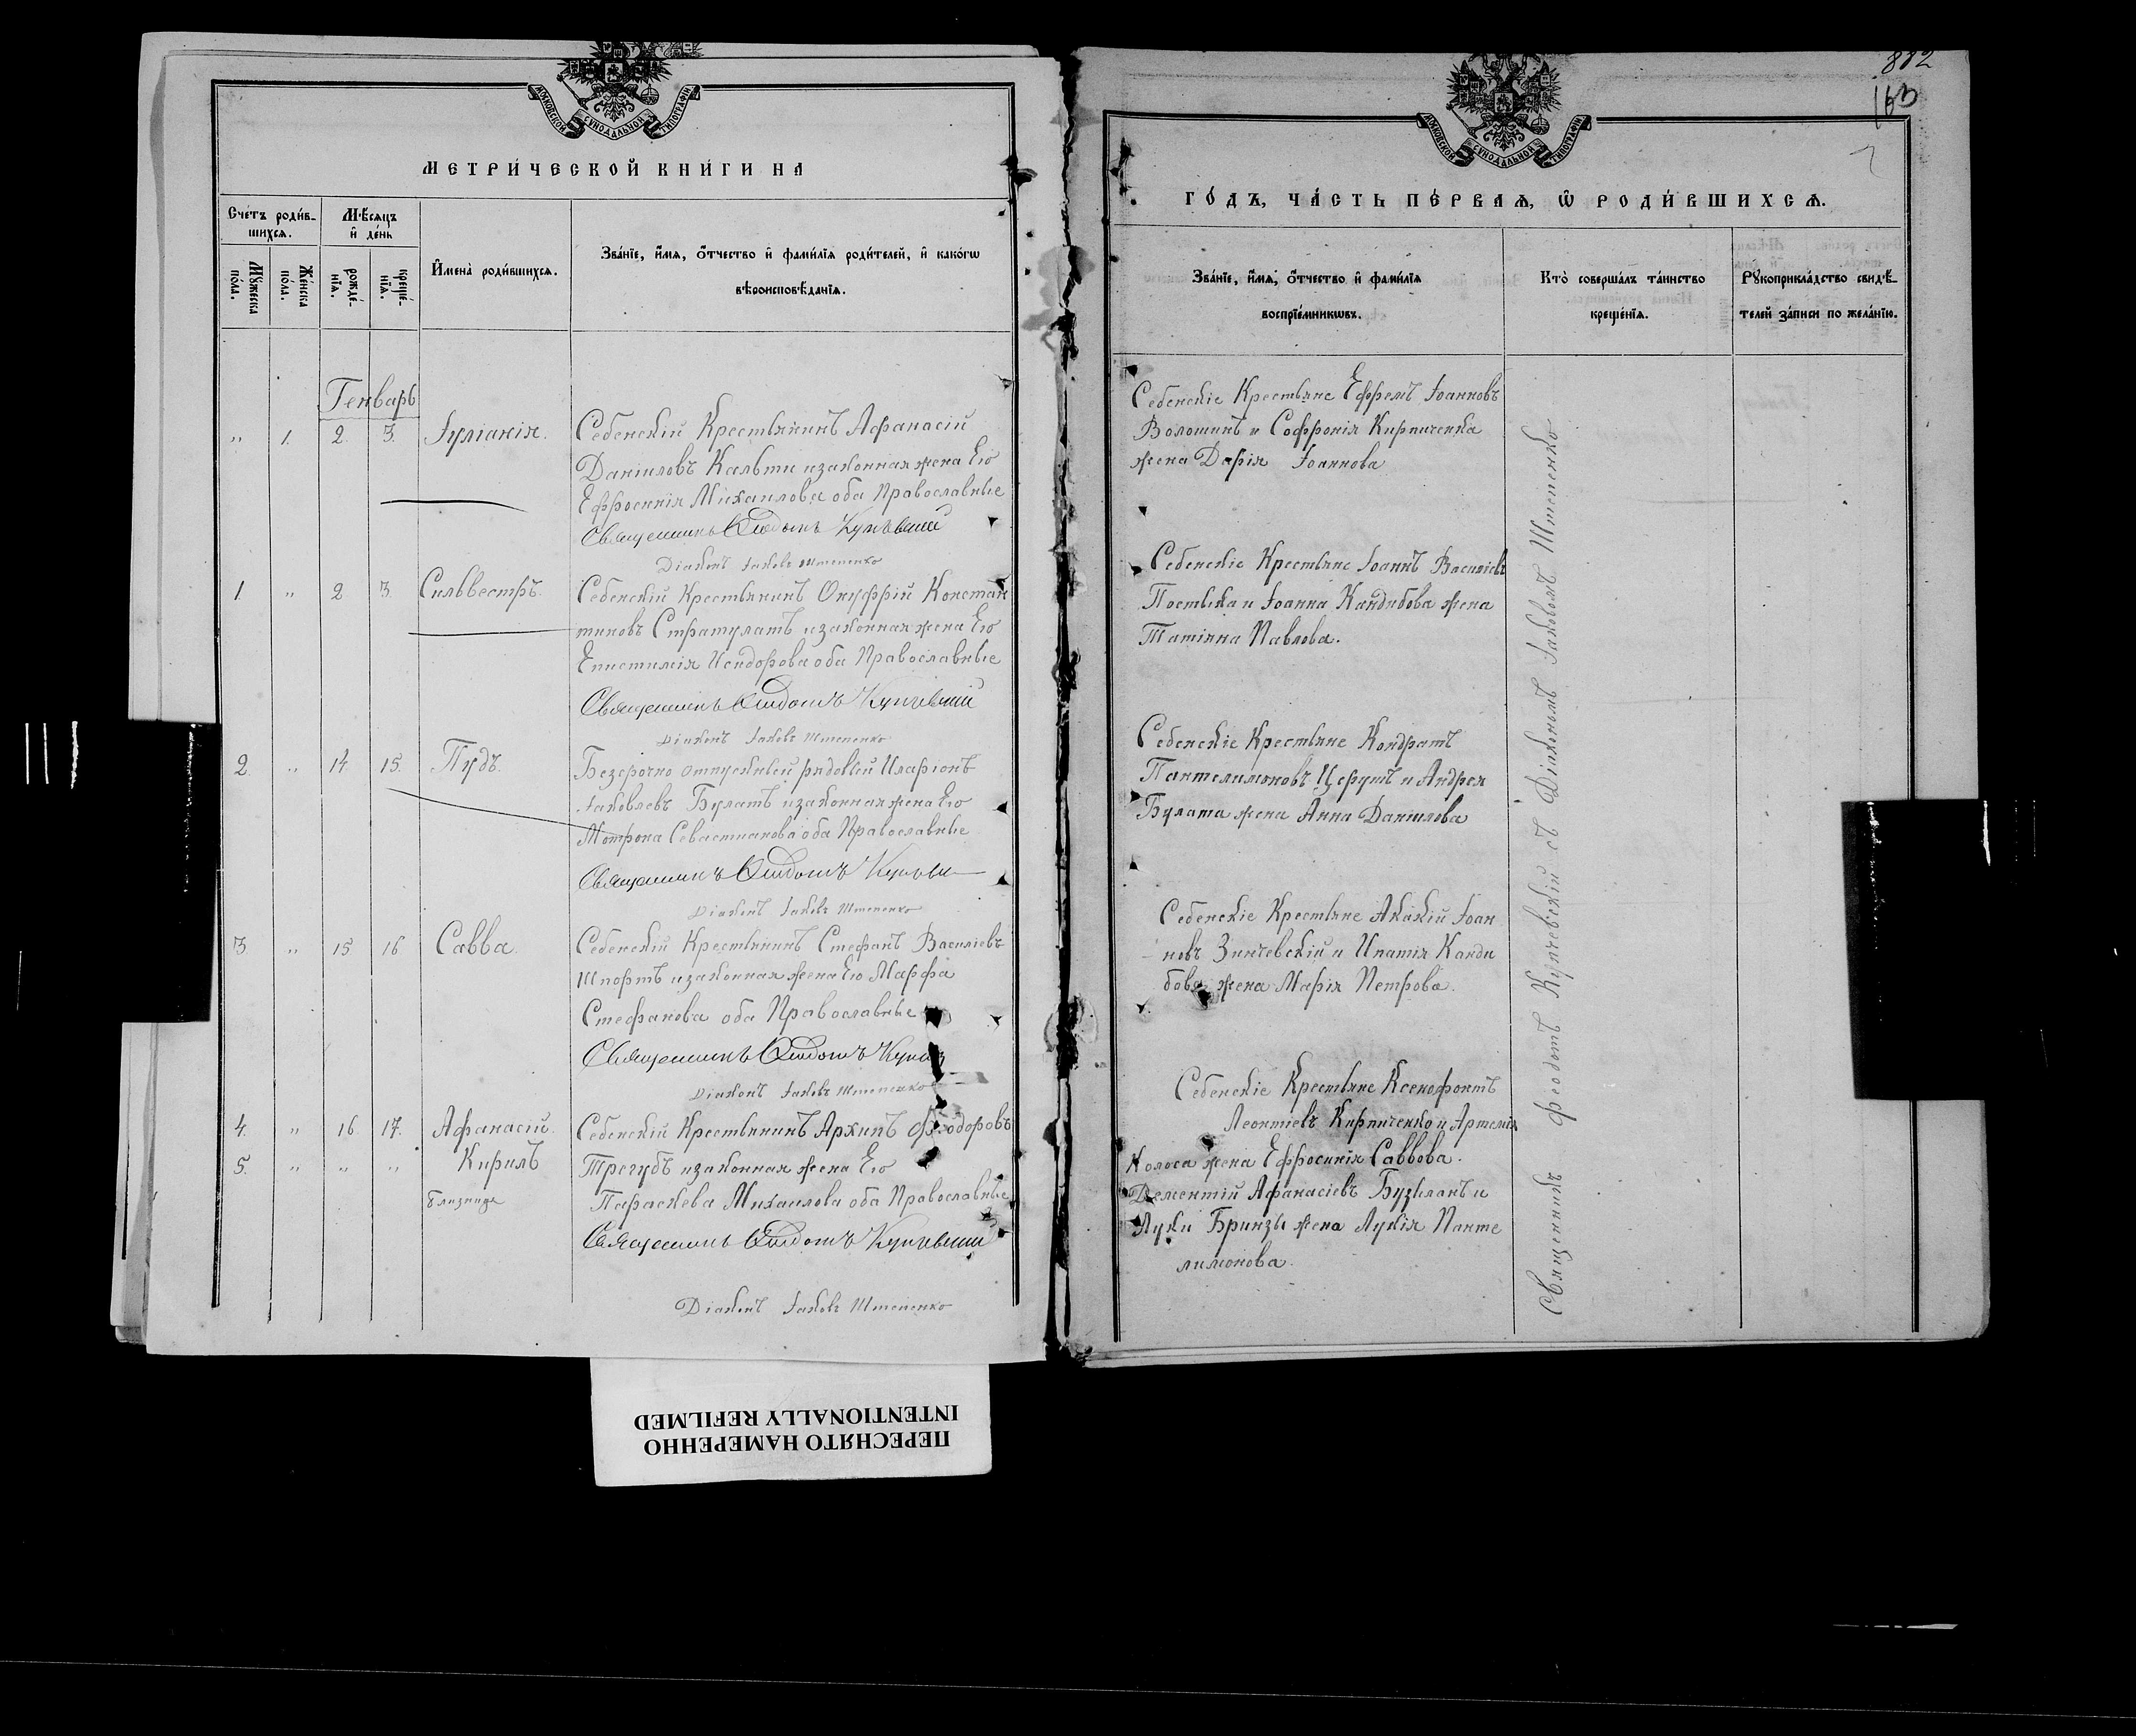 МОСКОВСКОЙ СѴНОДАЛЬНОЙ ТИПОГРАФІИ
МЕТРИ́ЧЕСКОЙ КНИ́ГИ НА
Сче́тъ роди́в-
шихсѧ.
Мѣ́сѧцъ
и҆ де́нь
И҆мена̀ роди́вшихсѧ.
Зва́нїе, и҆́мѧ, ѻ҆́тчество и҆ фами́лїѧ роди́телей, и҆ како́гѡ
вѣроисповѣ́данїѧ.
Мꙋ́жеска
по́ла.
Же́нска
по́ла.
рожде́-
нїѧ.
креще́-
нїѧ.
Генварь
" 1. 2. 3. Іуліанія. Себенскій Крестьянинъ Афанасій
Даніиловъ Кальти изаконная жена Его
Ефросинія Михаилова оба Православные
Священникъ Ѳеодотъ Купчевскій
Діаконъ Іаковъ Штепенко
1. " 2 3. Сильвестръ. Себенскій Крестьянинъ Онуфрій Констан
тиновъ Стратулатъ изаконная жена Его
Епистимія Исидорова оба Православные
Священникъ Ѳеодотъ Купчевскій
Діаконъ Іаковъ Штепенко
2. " 14 15. Пудъ. Безсрочно отпускный рядовый Иларіонъ
Іаковлевъ Булатъ изаконная жена Его
Мотрона Севастианова оба Православные
Священникъ Ѳеодотъ
Діаконъ Іаковъ Штепенко
3 " 15 16 Савва. Себенскій Крестьянинъ Стефанъ Василіевъ
Шпортъ изаконная жена Его Марфа
Стефанова оба Православные
Священникъ Ѳеодотъ
Діаконъ Іаковъ Штепенко
4. " 16. 17. Афанасій. Себенскій Крестьянинъ Архипъ Феодоровъ
5. " " " Кирилъ Трегубъ изаконная жена Его
близнецы Параскева Михаилова оба Православные
Священникъ Ѳеодотъ Купчевскій
Діаконъ Іаковъ Штепенко
882
163
МОСКОВСКОЙ СѴНОДАЛЬНОЙ ТИПОГРАФІИ
ГО́ДЪ, ЧА́СТЬ ПЕ́РВАѦ, Ѡ҆ РОДИ́ВШИХСѦ.
Зва́нїе, и҆́мѧ, ѻ҆́тчество и҆ фами́лїѧ
воспрїе́мникѡвъ.
Кто̀ соверша́лъ та́инство
креще́нїѧ.
Рꙋкоприкла́дство свидѣ́-
телей за́писи по жела́нїю.
Себенскіе Крестьяне Ефремъ Іоанновъ
Волошинъ и Софронія Кирпиченка
жена Дарія Іоаннова
Себенскіе Крестьяне Іоаннъ Василіевъ
Постыка и Іоанна Кандибова жена
Татіяна Павлова.
Себенскіе Крестьяне Кондратъ
Пантелимоновъ Церутъ и Андрея
Булата жена Анна Даніилова
Себенскіе Крестьяне Акакій Іоан
новъ Зинчевскій и Ипатія Канди
бова жена Марія Петрова.
Себенскіе Крестьяне Ксенофонтъ
Леонтіевъ Кирпиченко и Артемія
Колоса жена Ефросинія Саввова.
Дементій Афанасіевъ Бузиланъ и
Луки Бринзы жена Лукія Панте
лимонова.
Священникъ Феодотъ Купчевскій съ Діакономъ Іаковомъ Штепенко
ПЕРЕСНЯТО НАМЕРЕННО
INTENTIONALLY REFILMED